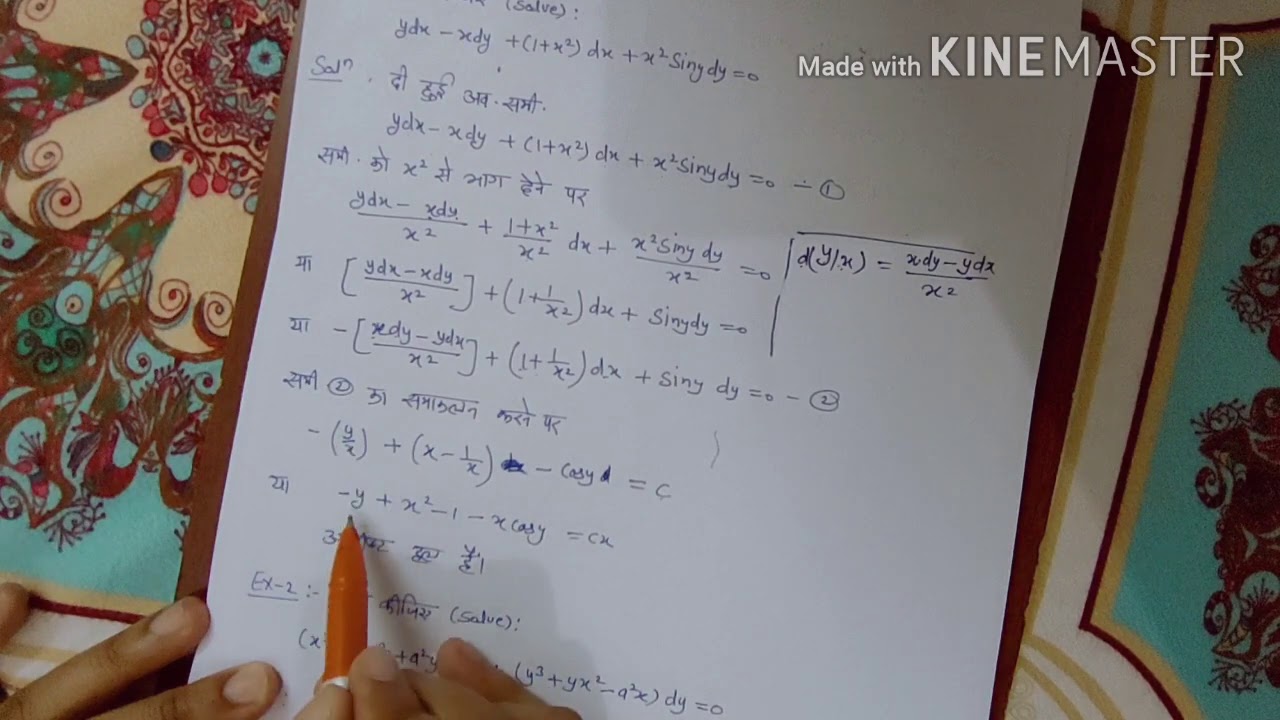 (Solve):
ydx - xdy + (1+x²) dx + x² Siny dy = 0
Made with KINEMASTER
Solⁿ. दी हुई अव. समी.
ydx - xdy + (1+x²) dx + x² Siny dy = 0 - ①
समी. को x² से भाग देने पर
(ydx - xdy)/x² + (1+x²)/x² dx + (x² Siny dy)/x² = 0
d(y/x) = (xdy - ydx)/x²
या [(ydx - xdy)/x²] + (1 + 1/x²) dx + Siny dy = 0
या - [(xdy - ydx)/x²] + (1 + 1/x²) dx + Siny dy = 0 - ②
समी ② का समाकलन करने पर
- (y/x) + (x - 1/x) - Cosy = c
या -y + x² - 1 - x Cosy = cx
हल है।
Ex-2 :- कीजिए (Solve):
(y³ + yx² - a²x) dy = 0